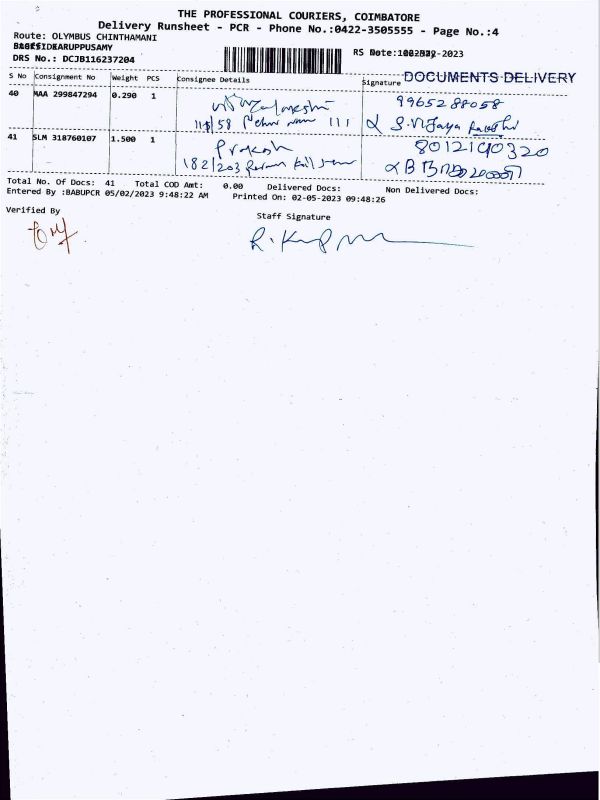 THE PROFESSIONAL COURIERS, COIMBATORE
Delivery Runsheet - PCR - Phone No.:0422-3505555 - Page No.:4
Route: OLYMBUS CHINTHAMANI
DRS No.: DCJB116237204
DOCUMENTS DELIVERY
S No Consignment No Weight PCS Consignee Details Signature
40 MAA 299847294 0.290 1 9965288058
41 SLM 318760107 1.500 1 Prakash 8012190320
182/203
Total No. Of Docs: 41 Total COD Amt: 0.00 Delivered Docs: Non Delivered Docs:
Entered By :BABUPCR 05/02/2023 9:48:22 AM Printed On: 02-05-2023 09:48:26
Verified By
Staff Signature